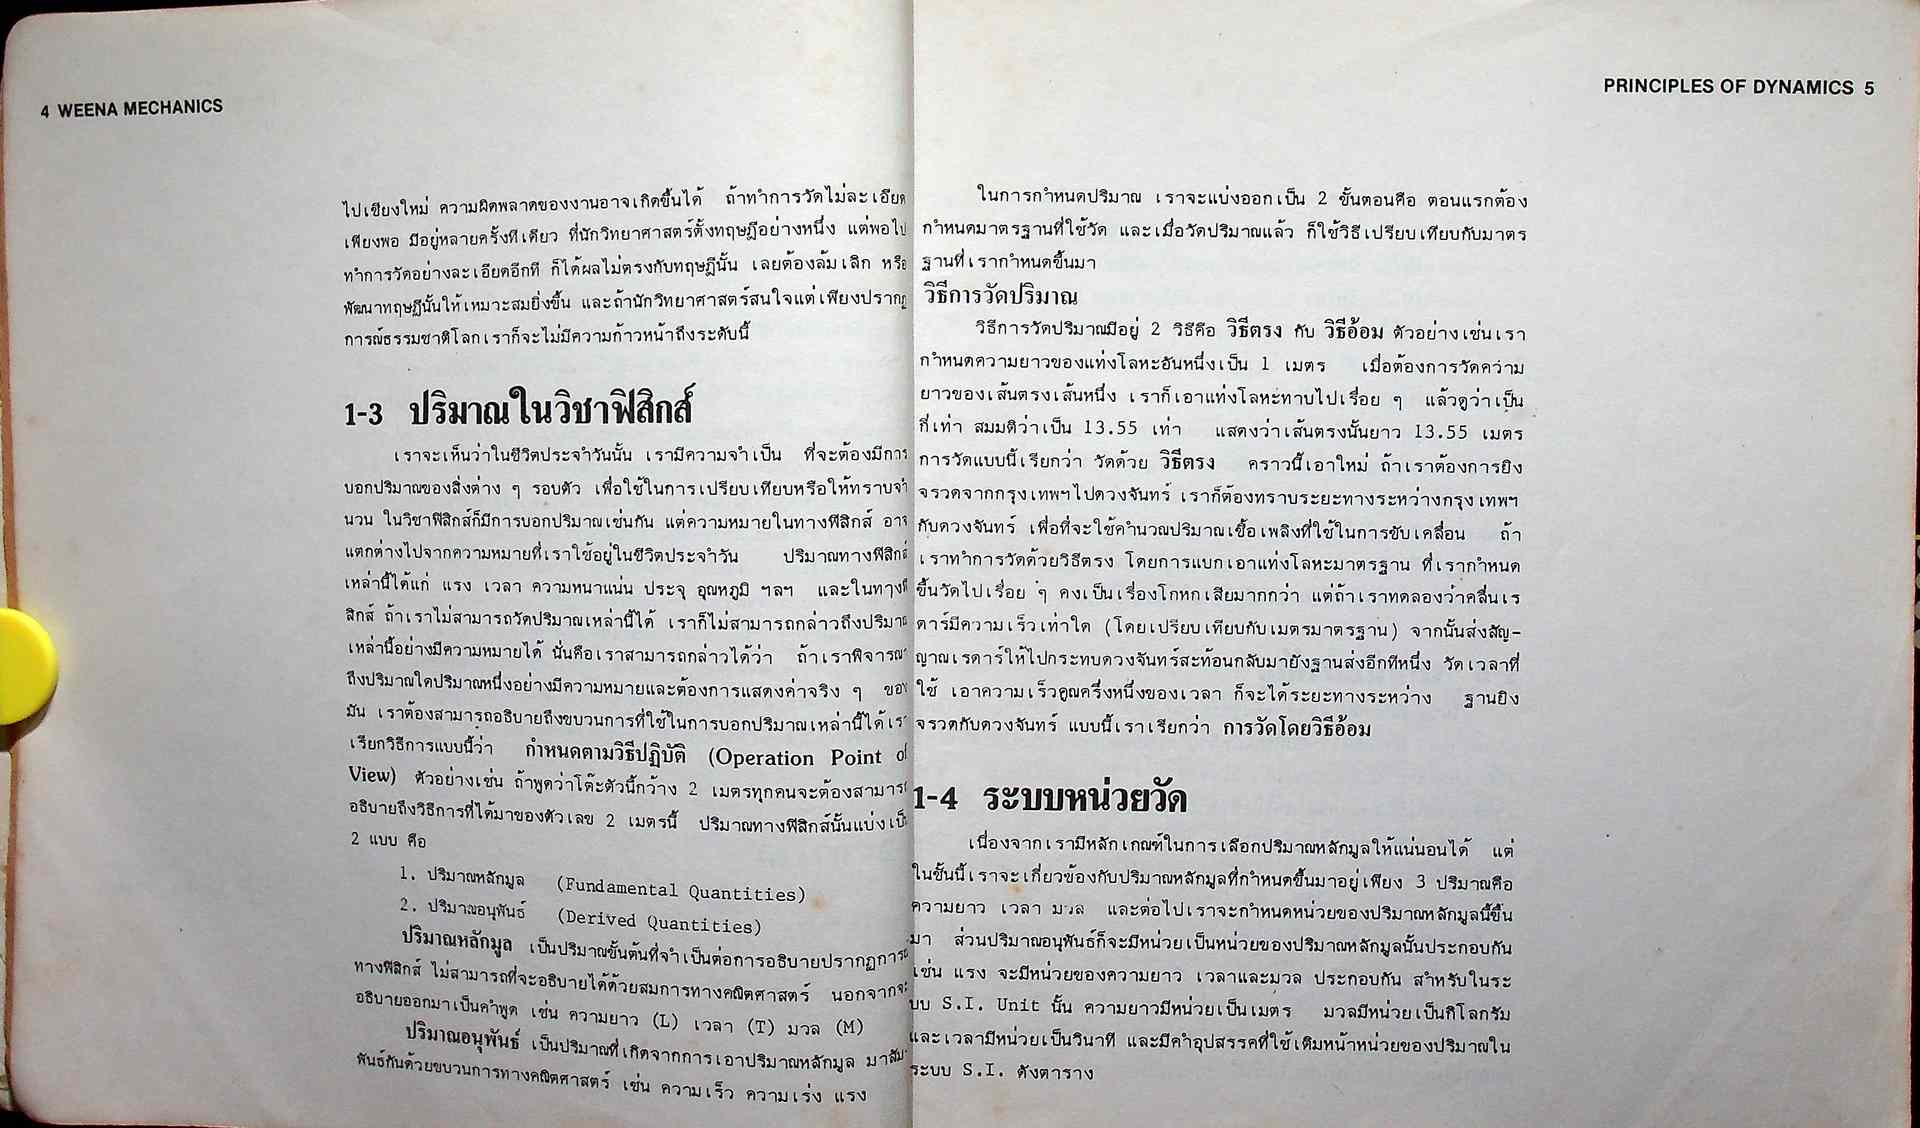 4 WEENA MECHANICS
ไปเชียงใหม่ ความผิดพลาดของงานอาจเกิดขึ้นได้ ถ้าทำการวัดไม่ละเอียด
เพียงพอ มีอยู่หลายครั้งทีเดียว ที่นักวิทยาศาสตร์ตั้งทฤษฎีอย่างหนึ่ง แต่พอไป
ทำการวัดอย่างละเอียดอีกที ก็ได้ผลไม่ตรงกับทฤษฎีนั้น เลยต้องล้มเลิก หรือ
พัฒนาทฤษฎีนั้นให้เหมาะสมยิ่งขึ้น และถ้านักวิทยาศาสตร์สนใจแต่เพียงปรากฏ
การณ์ธรรมชาติโลกเราก็จะไม่มีความก้าวหน้าถึงระดับนี้
1-3 ปริมาณในวิชาฟิสิกส์
เราจะเห็นว่าในชีวิตประจำวันนั้น เรามีความจำเป็น ที่จะต้องมีการ
บอกปริมาณของสิ่งต่าง ๆ รอบตัว เพื่อใช้ในการเปรียบเทียบหรือให้ทราบจำ
นวน ในวิชาฟิสิกส์ก็มีการบอกปริมาณเช่นกัน แต่ความหมายในทางฟิสิกส์ อาจ
แตกต่างไปจากความหมายที่เราใช้อยู่ในชีวิตประจำวัน ปริมาณทางฟิสิกส์
เหล่านี้ได้แก่ แรง เวลา ความหนาแน่น ประจุ อุณหภูมิ ฯลฯ และในทางฟิ
สิกส์ ถ้าเราไม่สามารถวัดปริมาณเหล่านี้ได้ เราก็ไม่สามารถกล่าวถึงปริมาณ
เหล่านี้อย่างมีความหมายได้ นั่นคือเราสามารถกล่าวได้ว่า ถ้าเราพิจารณา
ถึงปริมาณใดปริมาณหนึ่งอย่างมีความหมายและต้องการแสดงค่าจริง ๆ ของ
มัน เราต้องสามารถอธิบายถึงขบวนการที่ใช้ในการบอกปริมาณเหล่านี้ได้เรา
เรียกวิธีการแบบนี้ว่า กำหนดตามวิธีปฏิบัติ (Operation Point of
View) ตัวอย่างเช่น ถ้าพูดว่าโต๊ะตัวนี้กว้าง 2 เมตรทุกคนจะต้องสามารถ
อธิบายถึงวิธีการที่ได้มาของตัวเลข 2 เมตรนี้ ปริมาณทางฟิสิกส์นั้นแบ่งเป็น
2 แบบ คือ
1. ปริมาณหลักมูล (Fundamental Quantities)
2. ปริมาณอนุพันธ์ (Derived Quantities)
ปริมาณหลักมูล เป็นปริมาณขั้นต้นที่จำเป็นต่อการอธิบายปรากฏการณ์
ทางฟิสิกส์ ไม่สามารถที่จะอธิบายได้ด้วยสมการทางคณิตศาสตร์ นอกจากจะ
อธิบายออกมาเป็นคำพูด เช่น ความยาว (L) เวลา (T) มวล (M)
ปริมาณอนุพันธ์ เป็นปริมาณที่เกิดจากการเอาปริมาณหลักมูล มาสัม
พันธ์กันด้วยขบวนการทางคณิตศาสตร์ เช่น ความเร็ว ความเร่ง แรง
PRINCIPLES OF DYNAMICS 5
ในการกำหนดปริมาณ เราจะแบ่งออกเป็น 2 ขั้นตอนคือ ตอนแรกต้อง
กำหนดมาตรฐานที่ใช้วัด และเมื่อวัดปริมาณแล้ว ก็ใช้วิธีเปรียบเทียบกับมาตร
ฐานที่เรากำหนดขึ้นมา
วิธีการวัดปริมาณ
วิธีการวัดปริมาณมีอยู่ 2 วิธีคือ วิธีตรง กับ วิธีอ้อม ตัวอย่างเช่นเรา
กำหนดความยาวของแท่งโลหะอันหนึ่งเป็น 1 เมตร เมื่อต้องการวัดความ
ยาวของเส้นตรงเส้นหนึ่ง เราก็เอาแท่งโลหะทาบไปเรื่อย ๆ แล้วดูว่าเป็น
กี่เท่า สมมติว่าเป็น 13.55 เท่า แสดงว่าเส้นตรงนั้นยาว 13.55 เมตร
การวัดแบบนี้เรียกว่า วัดด้วย วิธีตรง คราวนี้เอาใหม่ ถ้าเราต้องการยิง
จรวดจากกรุงเทพฯไปดวงจันทร์ เราก็ต้องทราบระยะทางระหว่างกรุงเทพฯ
กับดวงจันทร์ เพื่อที่จะใช้คำนวณปริมาณเชื้อเพลิงที่ใช้ในการขับเคลื่อน ถ้า
เราทำการวัดด้วยวิธีตรง โดยการแบกเอาแท่งโลหะมาตรฐาน ที่เรากำหนด
ขึ้นวัดไปเรื่อย ๆ คงเป็นเรื่องโกหกเสียมากกว่า แต่ถ้าเราทดลองว่าคลื่นเร
ดาร์มีความเร็วเท่าใด (โดยเปรียบเทียบกับเมตรมาตรฐาน) จากนั้นส่งสัญ-
ญาณเรดาร์ให้ไปกระทบดวงจันทร์สะท้อนกลับมายังฐานส่งอีกทีหนึ่ง วัดเวลาที่
ใช้ เอาความเร็วคูณครึ่งหนึ่งของเวลา ก็จะได้ระยะทางระหว่าง ฐานยิง
จรวดกับดวงจันทร์ แบบนี้เราเรียกว่า การวัดโดยวิธีอ้อม
1-4 ระบบหน่วยวัด
เนื่องจากเรามีหลักเกณฑ์ในการเลือกปริมาณหลักมูลให้แน่นอนได้ แต่
ในชั้นนี้เราจะเกี่ยวข้องกับปริมาณหลักมูลที่กำหนดขึ้นมาอยู่เพียง 3 ปริมาณคือ
ความยาว เวลา มวล และต่อไปเราจะกำหนดหน่วยของปริมาณหลักมูลนี้ขึ้น
มา ส่วนปริมาณอนุพันธ์ก็จะมีหน่วยเป็นหน่วยของปริมาณหลักมูลนั้นประกอบกัน
เช่น แรง จะมีหน่วยของความยาว เวลาและมวล ประกอบกัน สำหรับในระ
บบ S.I. Unit นั้น ความยาวมีหน่วยเป็นเมตร มวลมีหน่วยเป็นกิโลกรัม
และเวลามีหน่วยเป็นวินาที และมีคำอุปสรรคที่ใช้เติมหน้าหน่วยของปริมาณใน
ระบบ S.I. ดังตาราง